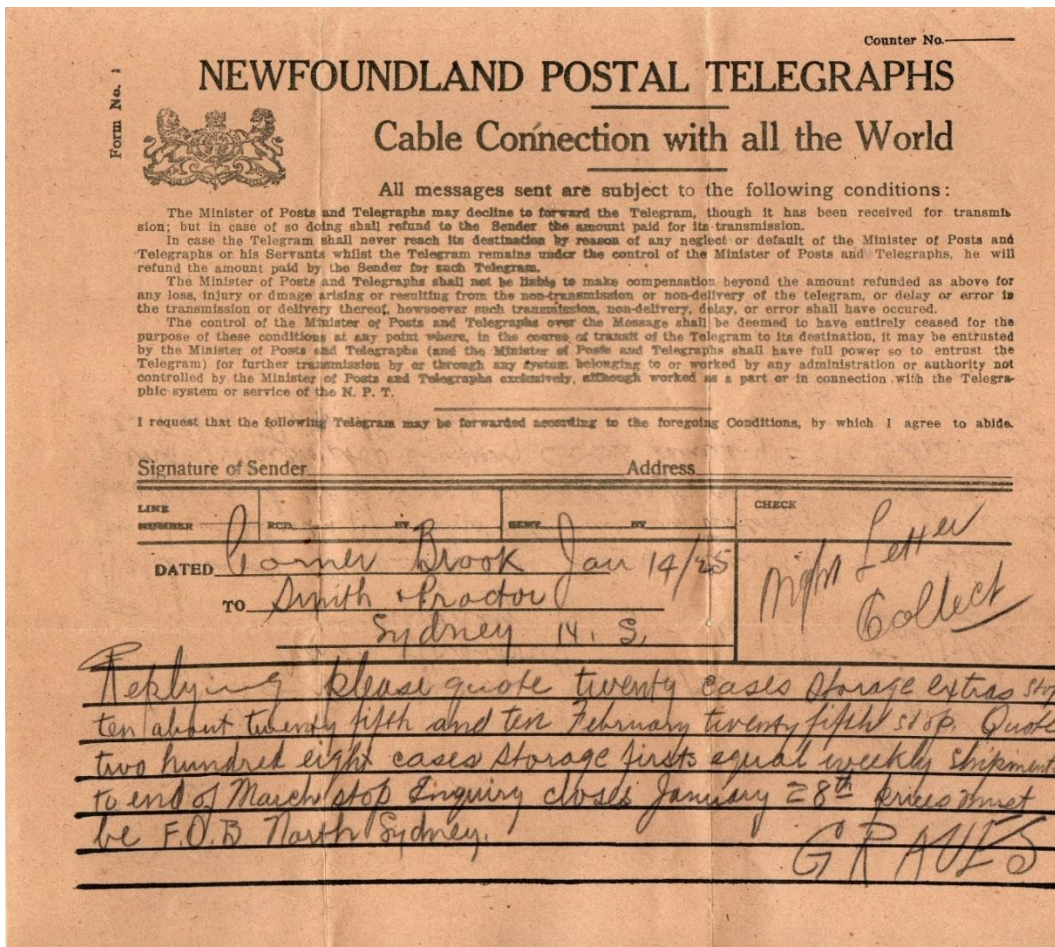 Counter No.
Form No. 1
NEWFOUNDLAND POSTAL TELEGRAPHS
Cable Connection with all the World
All messages sent are subject to the following conditions:
The Minister of Posts and Telegraphs may decline to forward the Telegram, though it has been received for transmis
sion; but in case of so doing shall refund to the Sender the amount paid for its transmission.
In case the Telegram shall never reach its destination by reason of any neglect or default of the Minister of Posts and
Telegraphs or his Servants whilst the Telegram remains under the control of the Minister of Posts and Telegraphs, he will
refund the amount paid by the Sender for such Telegram.
The Minister of Posts and Telegraphs shall not be liable to make compensation beyond the amount refunded as above for
any loss, injury or dmage arising or resulting from the non-transmission or non-delivery of the telegram, or delay or error in
the transmission or delivery thereof, howsoever such transmission, non-delivery, delay, or error shall have occured.
The control of the Minister of Posts and Telegraphs over the Message shall be deemed to have entirely ceased for the
purpose of these conditions at any point where, in the course of transit of the Telegram to its destination, it may be entrusted
by the Minister of Posts and Telegraphs (and the Minister of Posts and Telegraphs shall have full power so to entrust the
Telegram) for further transmission by or through any system belonging to or worked by any administration or authority not
controlled by the Minister of Posts and Telegraphs exclusively, although worked as a part or in connection with the Telegra-
phic system or service of the N. P. T.
I request that the following Telegram may be forwarded according to the foregoing Conditions, by which I agree to abide.
Signature of Sender Address
LINE
NUMBER RCD. BY SENT BY CHECK
DATED Corner Brook Jan 14/25
TO Smith & Proctor
Sydney N. S.
Night Letter
Collect
Replying please quote twenty cases storage extras stop
ten about twenty fifth and ten February twenty fifth stop. Quote
two hundred eight cases storage firsts equal weekly shipment
to end of March stop Enquiry closes January 28th prices must
be F.O.B North Sydney.
GRAVES